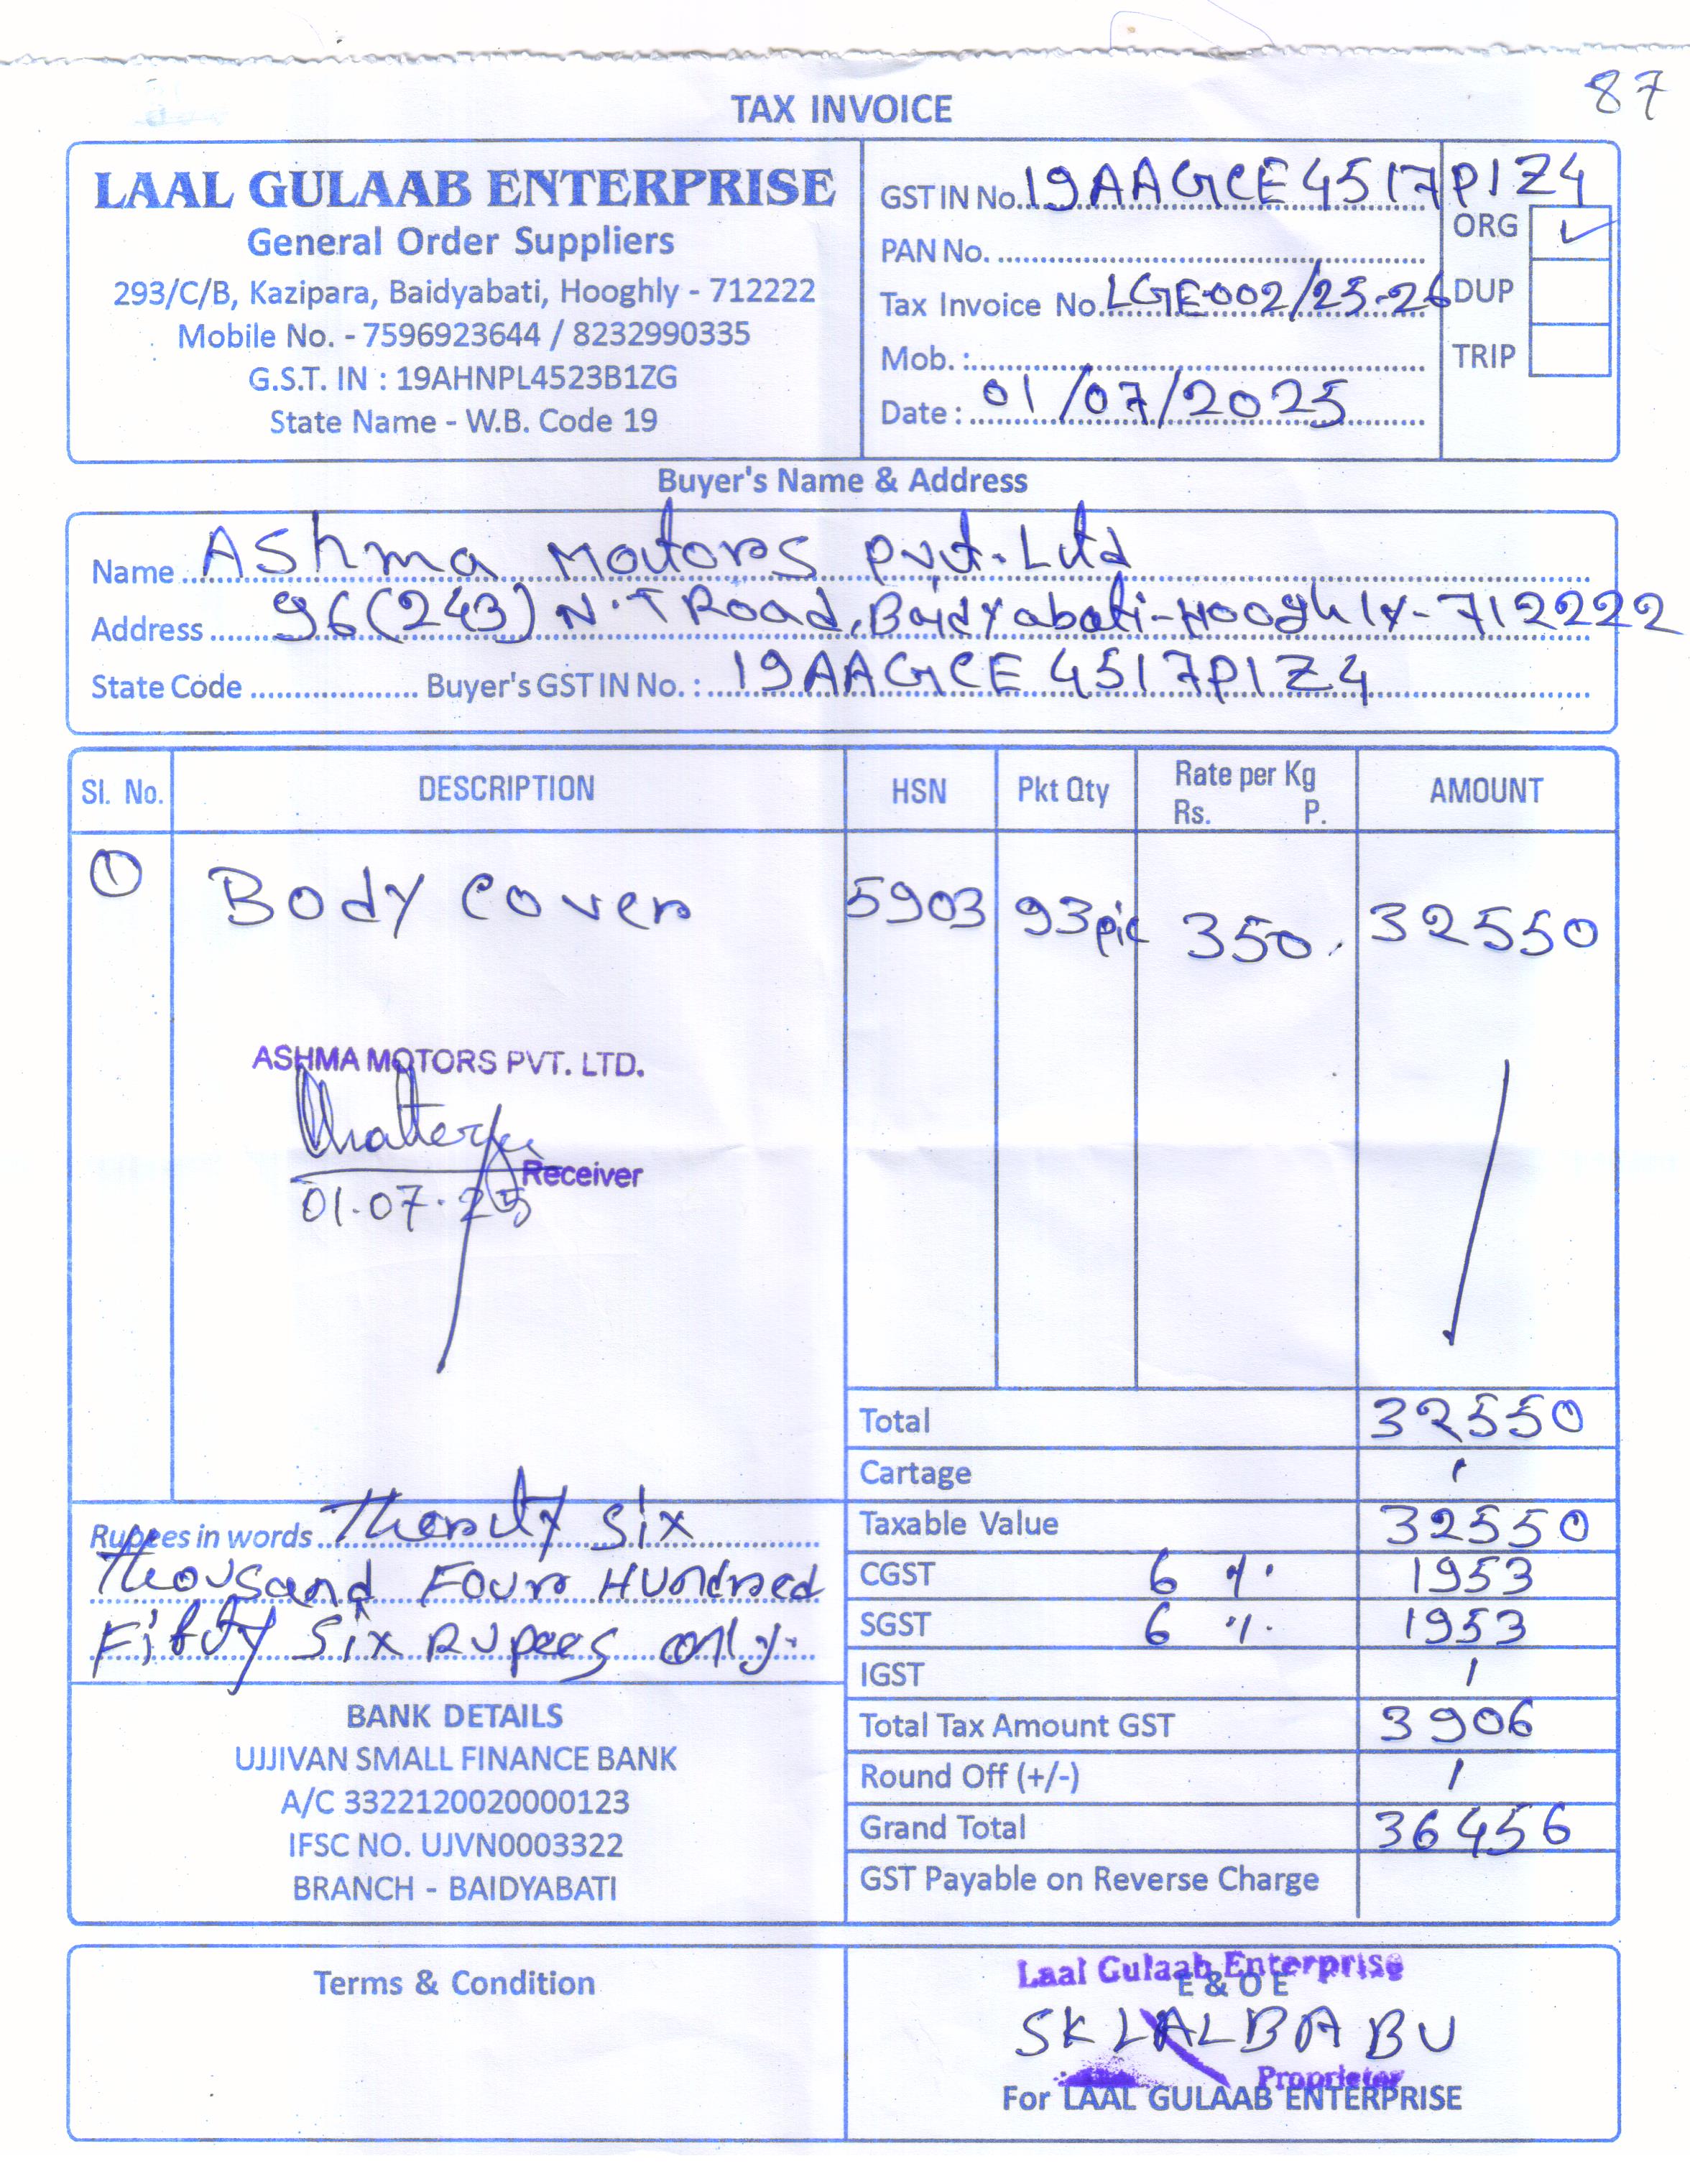 87
TAX INVOICE
LAAL GULAAB ENTERPRISE
General Order Suppliers
293/C/B, Kazipara, Baidyabati, Hooghly - 712222
Mobile No. - 7596923644 / 8232990335
G.S.T. IN : 19AHNPL4523B1ZG
State Name - W.B. Code 19
GST IN No. 19AAGCE4517P1Z4
PAN No.
Tax Invoice No. LGE002/25-26
Mob. :
Date : 01/07/2025
ORG ✓
DUP
TRIP
Buyer's Name & Address
Name Ashma Motors Pvt. Ltd
Address 96(243) N.T Road, Baidyabati-Hooghly-712222
State Code Buyer's GST IN No. : 19AAGCE4517P1Z4
Sl. No. DESCRIPTION HSN Pkt Qty Rate per Kg Rs. P. AMOUNT
1 Body Cover 5903 93 pic 350 32550
ASHMA MOTORS PVT. LTD.
Chatterjee
Receiver
01.07.25
Total 32550
Cartage
Taxable Value 32550
CGST 6 % 1953
SGST 6 % 1953
IGST
Total Tax Amount GST 3906
Round Off (+/-)
Grand Total 36456
GST Payable on Reverse Charge
Rupees in words Therity Six
Thousand Four Hundred
Fifty Six Rupees only.
BANK DETAILS
UJJIVAN SMALL FINANCE BANK
A/C 3322120020000123
IFSC NO. UJVN0003322
BRANCH - BAIDYABATI
Terms & Condition
Laal Gulaab Enterprise
E & O E
SK LALBABU
Proprietor
For LAAL GULAAB ENTERPRISE